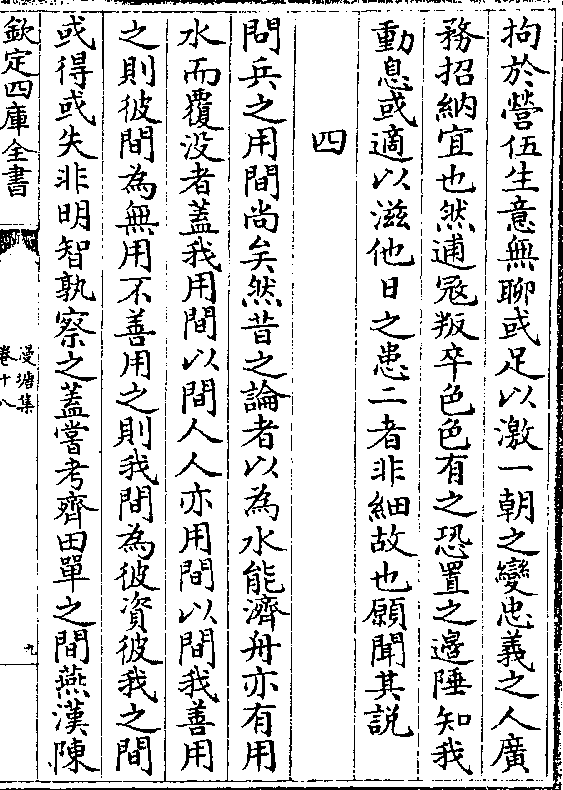 拘於營伍生意無聊或足以激一朝之變忠義之人廣
務招納宜也然逋冦叛卒色色有之恐置之邊陲知我
動息或適以滋他日之患二者非細故也願聞其説
四
問兵之用間尚矣然昔之論者以為水能濟舟亦有用
水而覆没者蓋我用間以間人人亦用間以間我善用
之則彼間為無用不善用之則我間為彼資彼我之間
或得或失非明智孰察之蓋嘗考齊田單之間燕漢陳
欽定四庫全書
漫塘集
卷十八
九